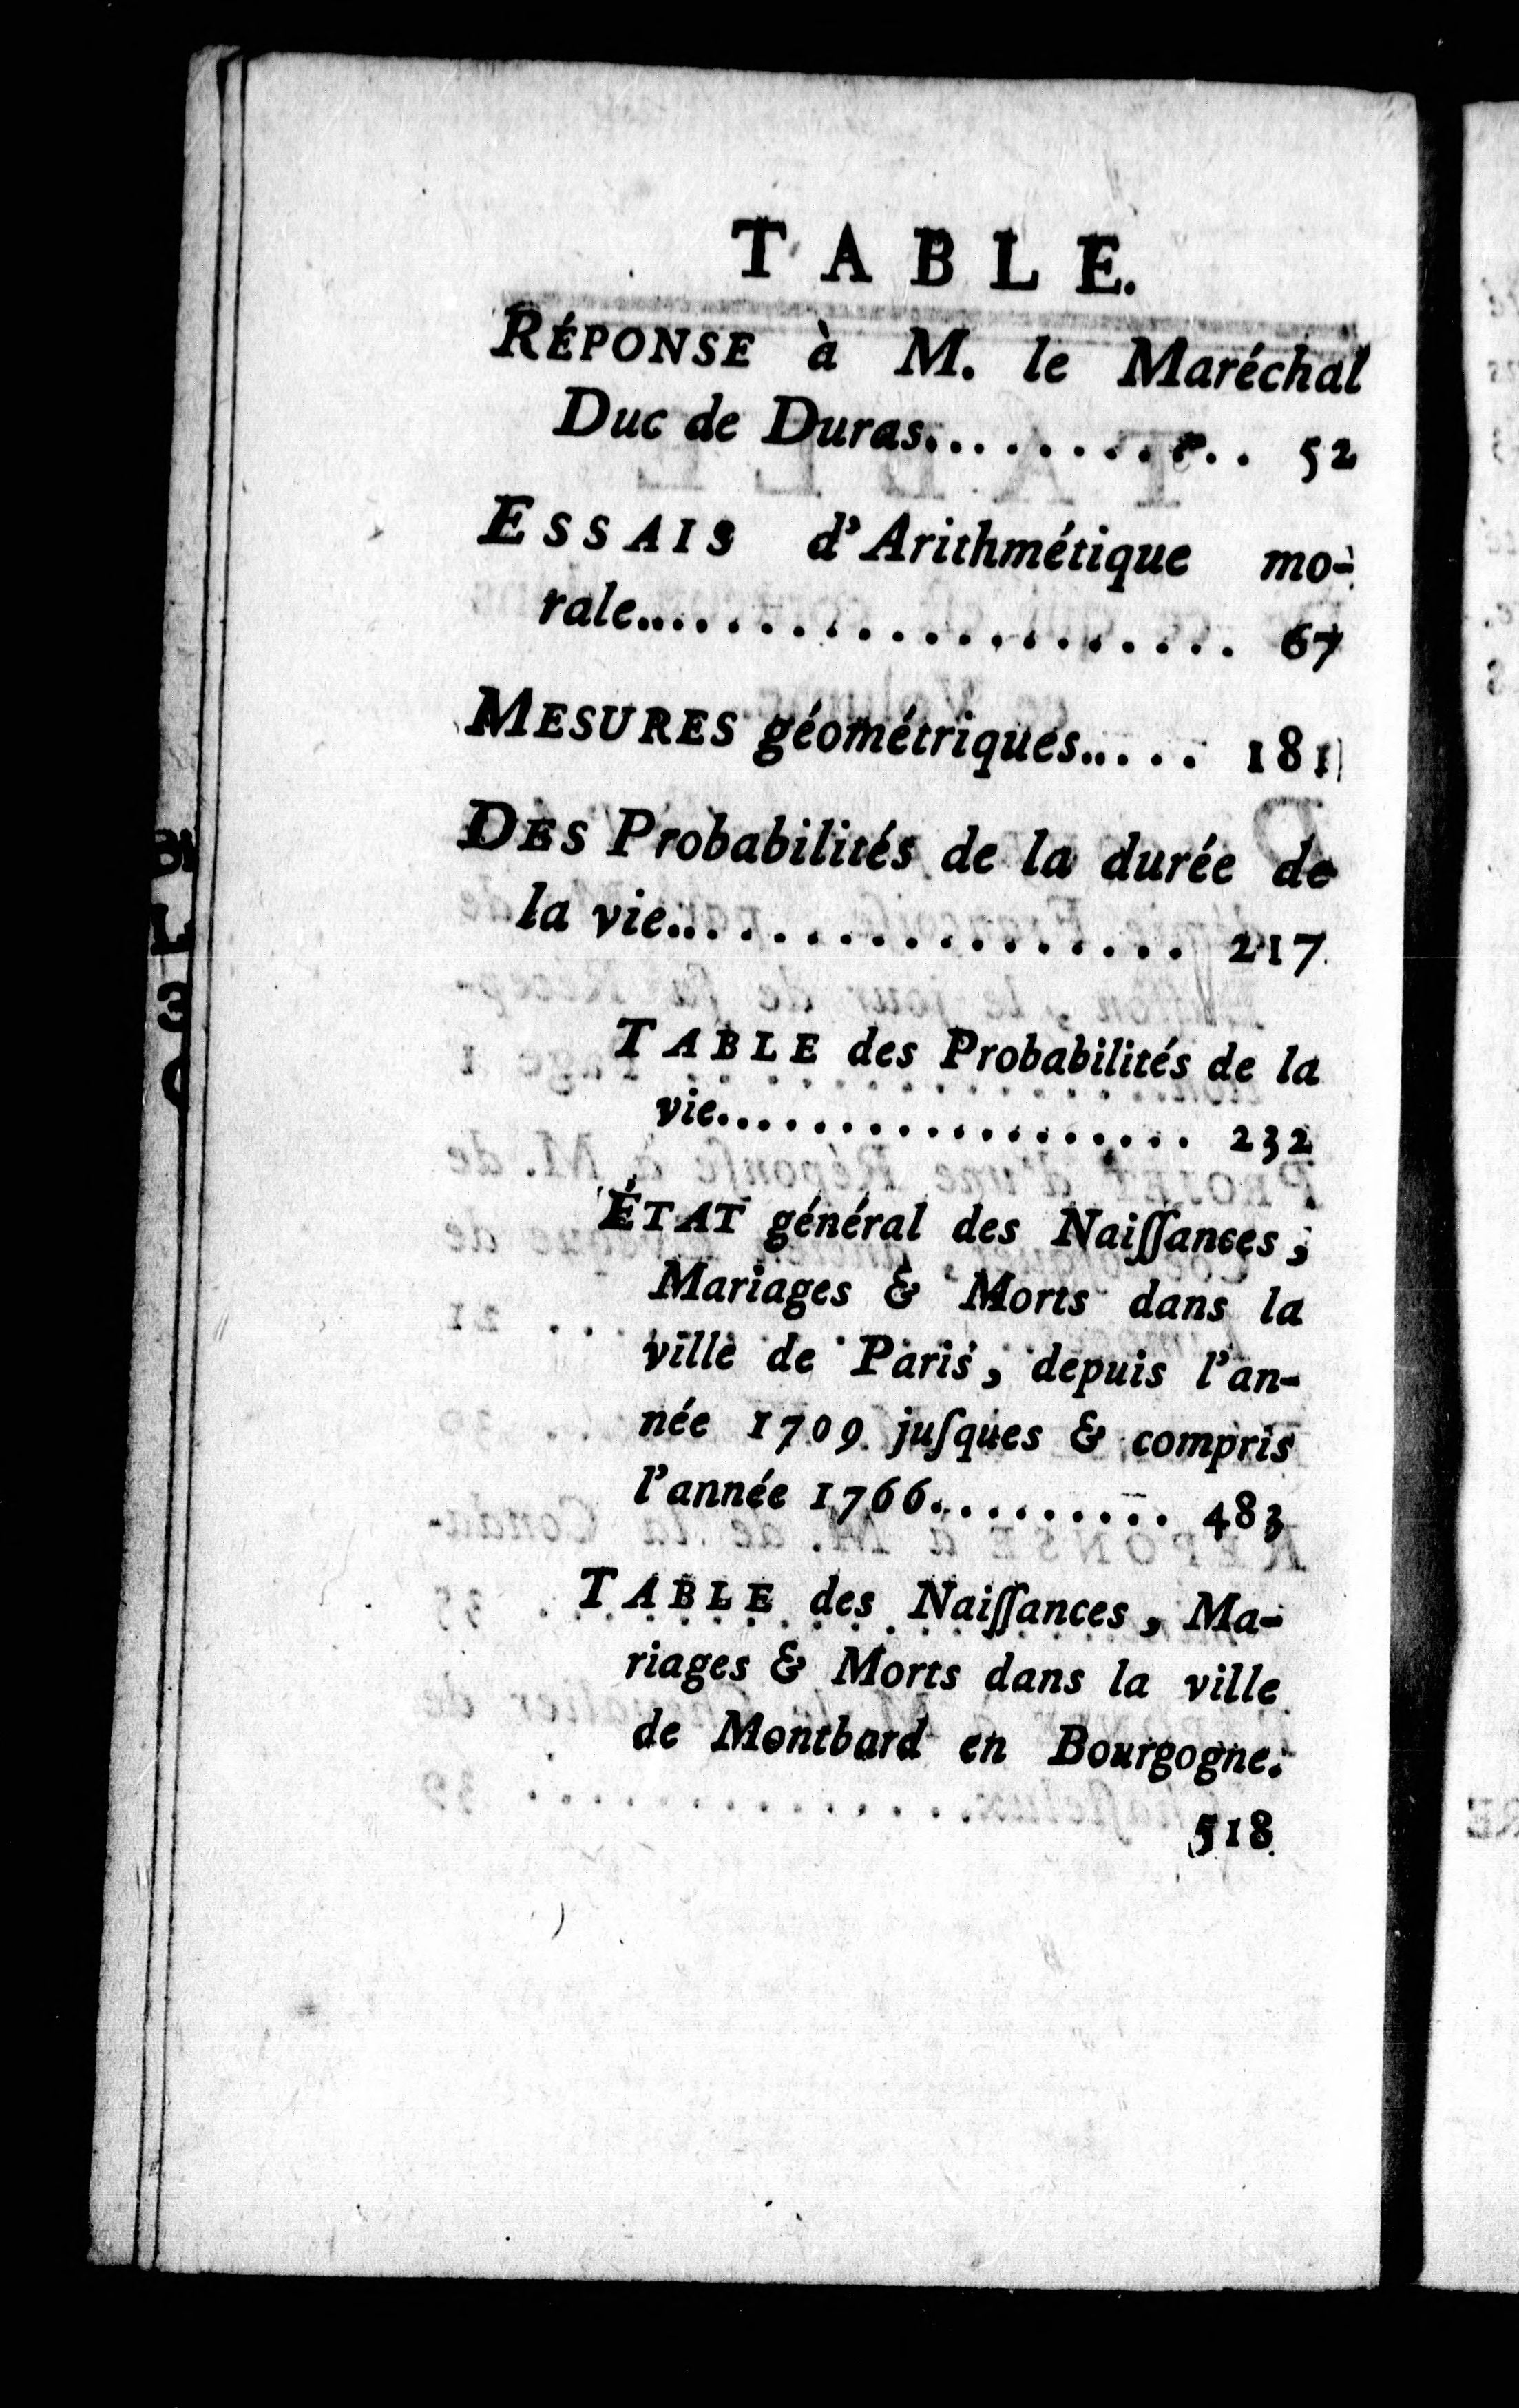 TABLE.
RÉPONSE à M. le Maréchal
Duc de Duras............ 52
ESSAIS d'Arithmétique mo-
rale.................... 67
MESURES géométriques..... 181
DES Probabilités de la durée de
la vie................. 217
TABLE des Probabilités de la
vie.................. 232
ÉTAT général des Naiſſances,
Mariages & Morts dans la
ville de Paris, depuis l'an-
née 1709 juſques & compris
l'année 1766......... 483
TABLE des Naiſſances, Ma-
riages & Morts dans la ville
de Montbard en Bourgogne.
518